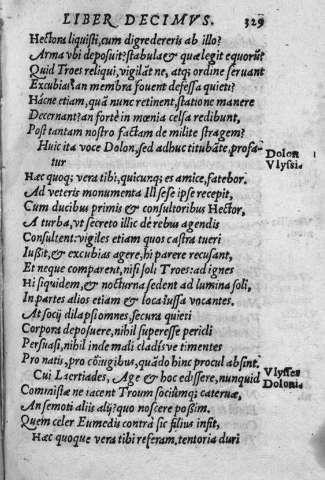 LIBER DECIMVS. 329
Hectora liquisti, cum digredereris ab illo?
Arma vbi deposuit? stabula & quæ legit equorũ?
Quid Troes reliqui, vigilãt ne, atq; ordine seruant
Excubias? an membra fouent defessa quietu?
Hácne etiam, quã nunc retinent, statione manere
Decernant? an forte in mœnia celsa redibunt,
Post tantam nostro factam de milite stragem?
Huic ita voce Dolon, sed adhuc titubãte, profa-
tur
Dolon
Vlyssi
Hæc quoq; vera tibi, quicunq; es amice, fatebor.
Ad veteris monumenta Ill sese ipse recepit,
Cum ducibus primis & consultoribus Hector,
A turba, vt secreto illic de rebus agendis
Consultent: vigiles etiam quos castra tueri
Iussit, & excubias agere, hi parere recusant,
Et neque comparent, nisi soli Troes: ad ignes
Hi siquidem, & nocturna sedent ad lumina soli,
In partes alios etiam & loca iussa vocantes.
At socij dilapsi omnes, secura quieti
Corpora deposuere, nihil superesse pericli
Persuasi, nihil inde mali cladisve timentes
Pro natis, pro cõiugibus, quãdo hinc procul absint.
Cui Laertiades, Age & hoc edissere, nunquid
Vlysses
Doloni
Commistæ ne iacent Troum sociũmq; cateruæ,
An semoti aliis alij? quo noscere possim.
Quem celer Eumedis contrà sic filius infit,
Hæc quoque vera tibi referam, tentoria duri